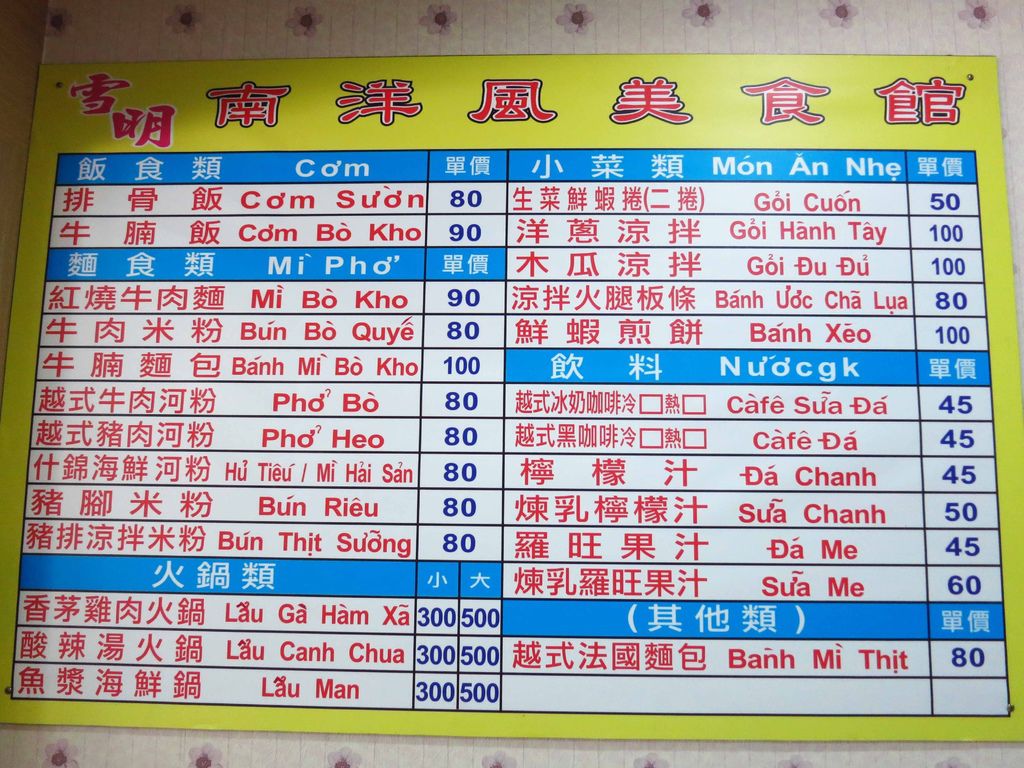 雪明 南洋風美食館
飯食類 Cơm 單價
排骨飯 Cơm Sườn 80
牛腩飯 Cơm Bò Kho 90
麵食類 Mì Phở 單價
紅燒牛肉麵 Mì Bò Kho 90
牛肉米粉 Bún Bò Quyế 80
牛腩麵包 Bánh Mì Bò Kho 100
越式牛肉河粉 Phở Bò 80
越式豬肉河粉 Phở Heo 80
什錦海鮮河粉 Hủ Tiếu / Mì Hải Sản 80
豬腳米粉 Bún Riêu 80
豬排涼拌米粉 Bún Thịt Sưỡng 80
火鍋類 小 大
香茅雞肉火鍋 Lẫu Gà Hàm Xã 300 500
酸辣湯火鍋 Lẫu Canh Chua 300 500
魚漿海鮮鍋 Lẫu Man 300 500
小菜類 Món Ăn Nhẹ 單價
生菜鮮蝦捲(二捲) Gỏi Cuốn 50
洋蔥涼拌 Gỏi Hành Tây 100
木瓜涼拌 Gỏi Đu Đủ 100
涼拌火腿板條 Bánh Ước Chã Lụa 80
鮮蝦煎餅 Bánh Xẽo 100
飲料 Nướcgk 單價
越式冰奶咖啡冷□熱□ Càfê Sữa Đá 45
越式黑咖啡冷□熱□ Càfê Đá 45
檸檬汁 Đá Chanh 45
煉乳檸檬汁 Sữa Chanh 50
羅旺果汁 Đá Me 45
煉乳羅旺果汁 Sữa Me 60
(其他類) 單價
越式法國麵包 Bành Mì Thịt 80